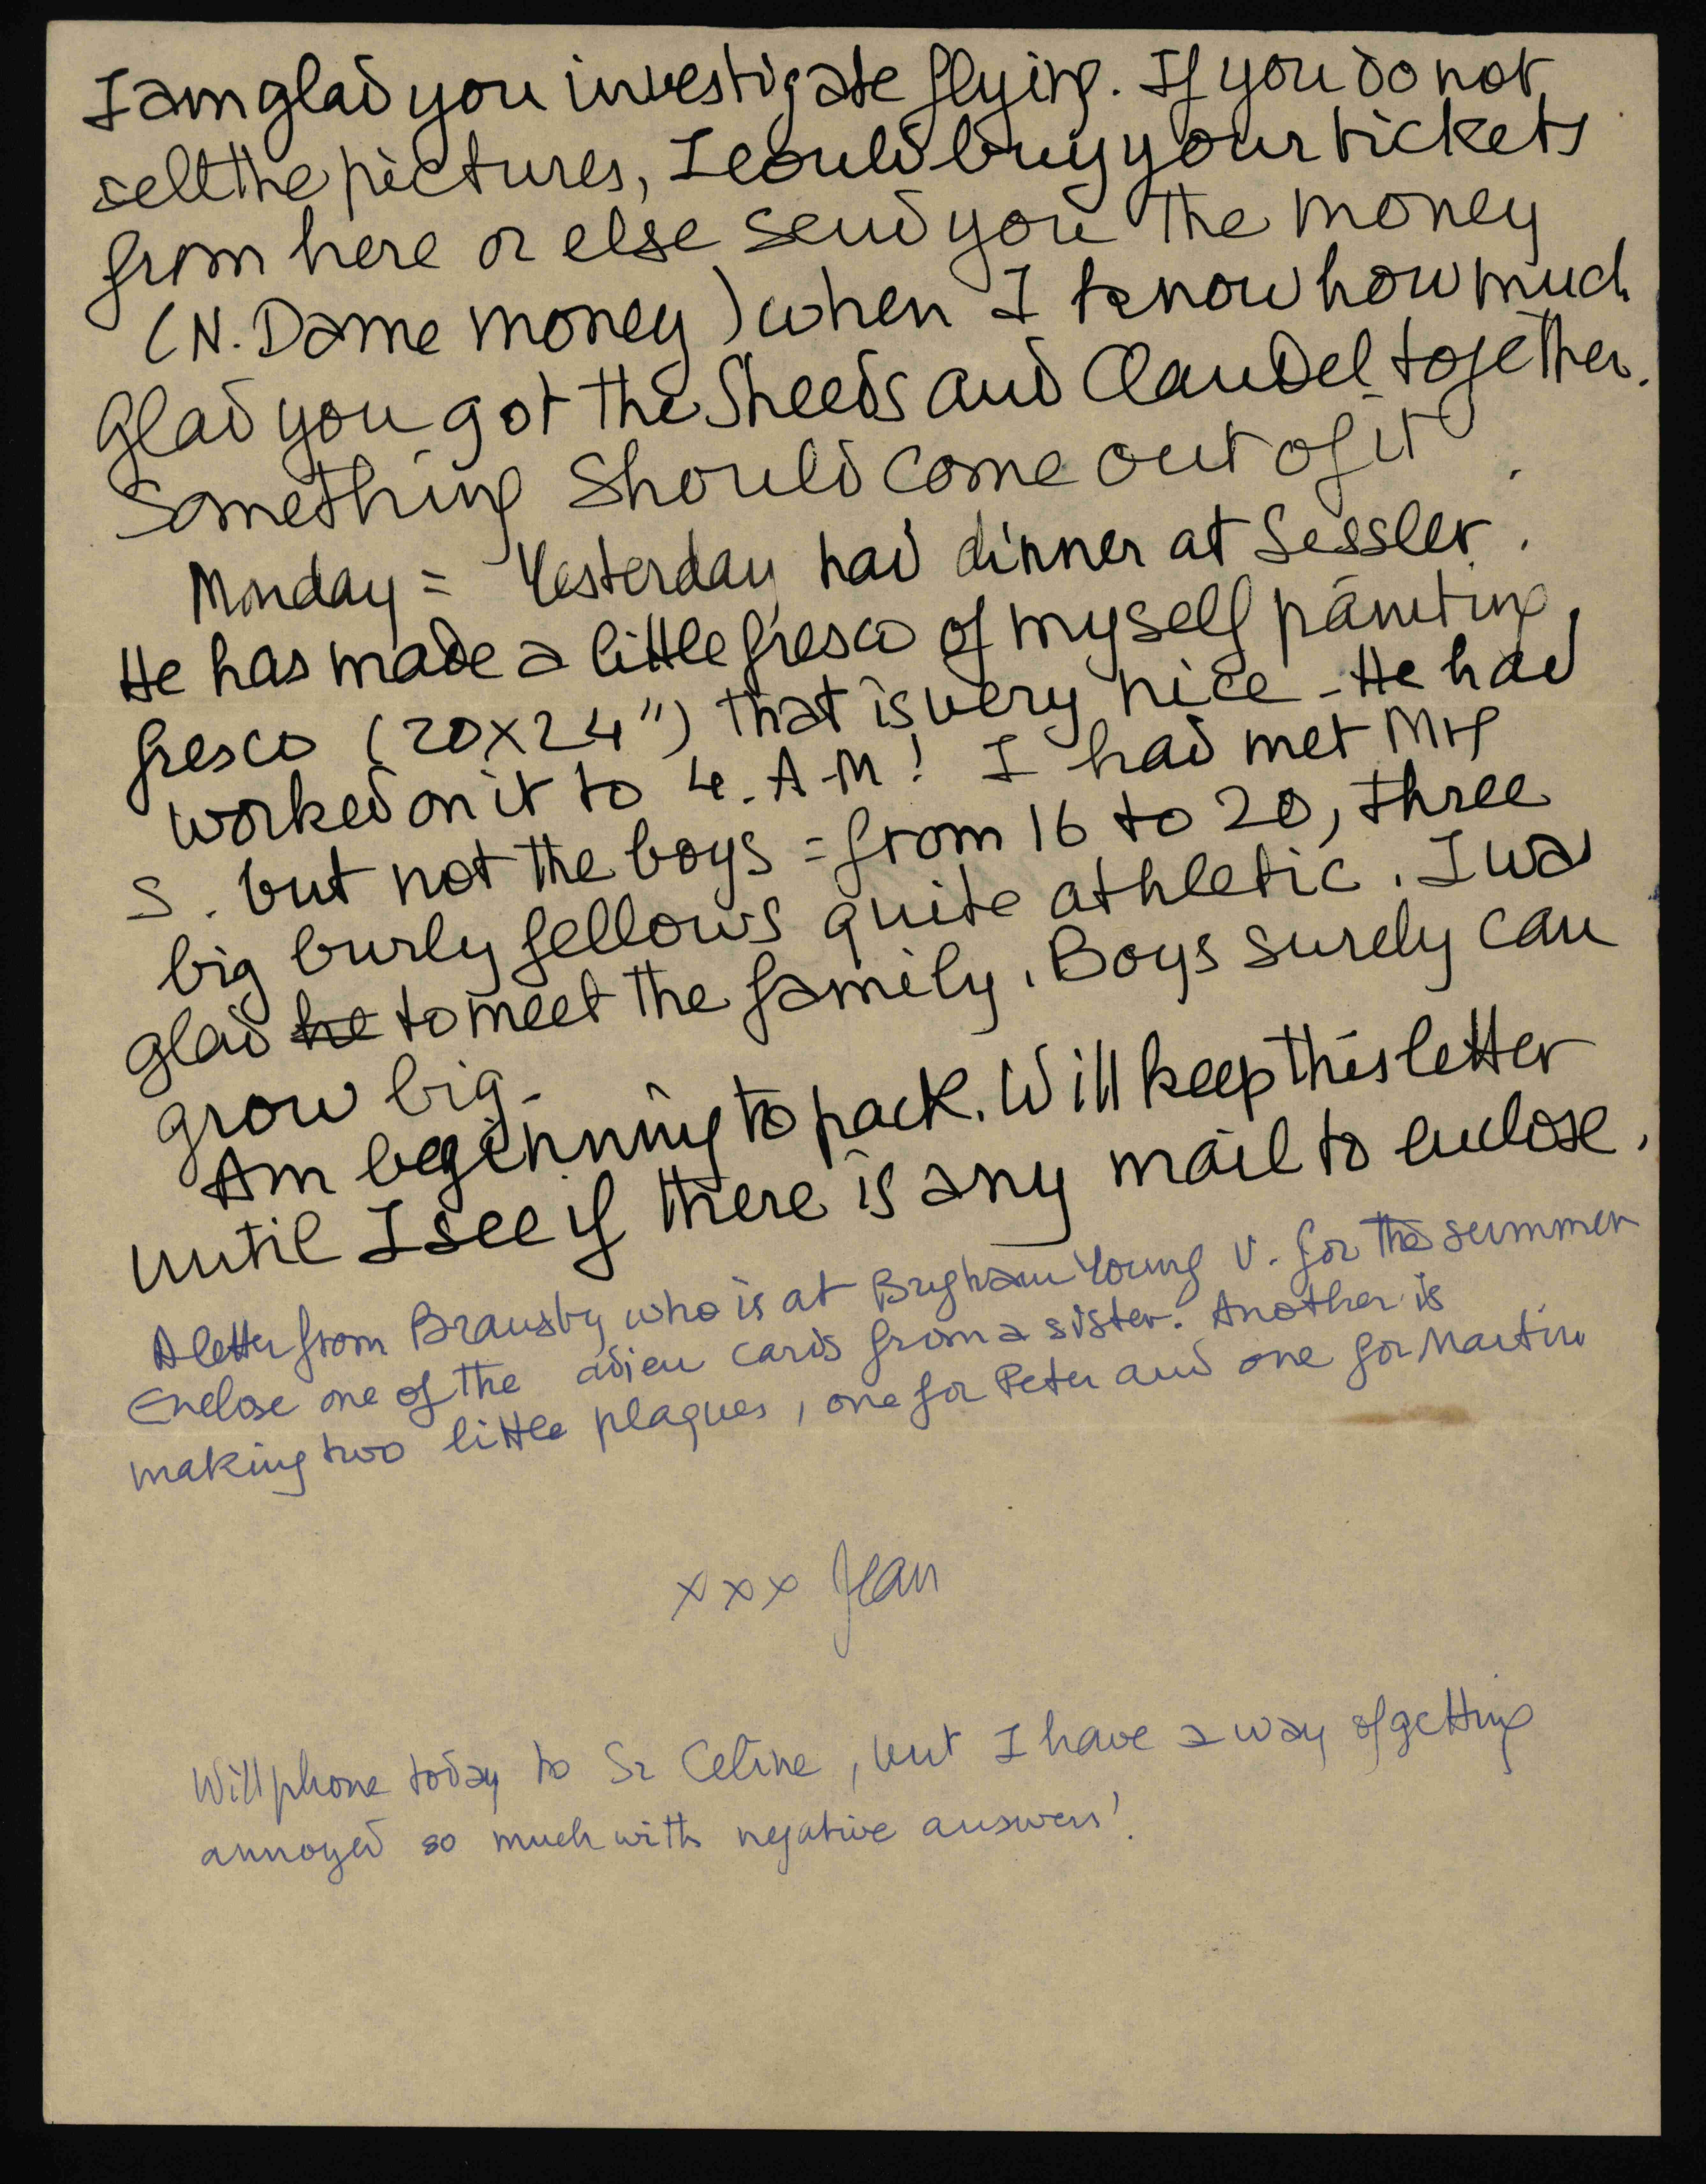 I am glad you investigate flying. If you do not
sell the pictures, I could buy your tickets
from here or else send you the money
(N. Dame money) when I know how much
Glad you got the Sheeds and Claudel together.
Something should come out of it.
Monday = Yesterday had dinner at Sessler.
He has made a little fresco of myself painting
fresco (20x24") that is very nice - He had
worked on it to 4. A.M! I had met
S. but not the boys = from 16 to 20, three
big burly fellows quite athletic. I was
glad he to meet the family. Boys surely can
grow big.
Am beginning to pack. Will keep this letter
until I see if there is any mail to enclose.
A letter from Bransby who is at Brigham Young U. for the summer
Enclose one of the adieu cards from a sister. Another is
making two little plaques, one for Peter and one for Martin
xxx Jean
Will phone today to Sr Celine, but I have a way of getting
annoyed so much with negative answers!